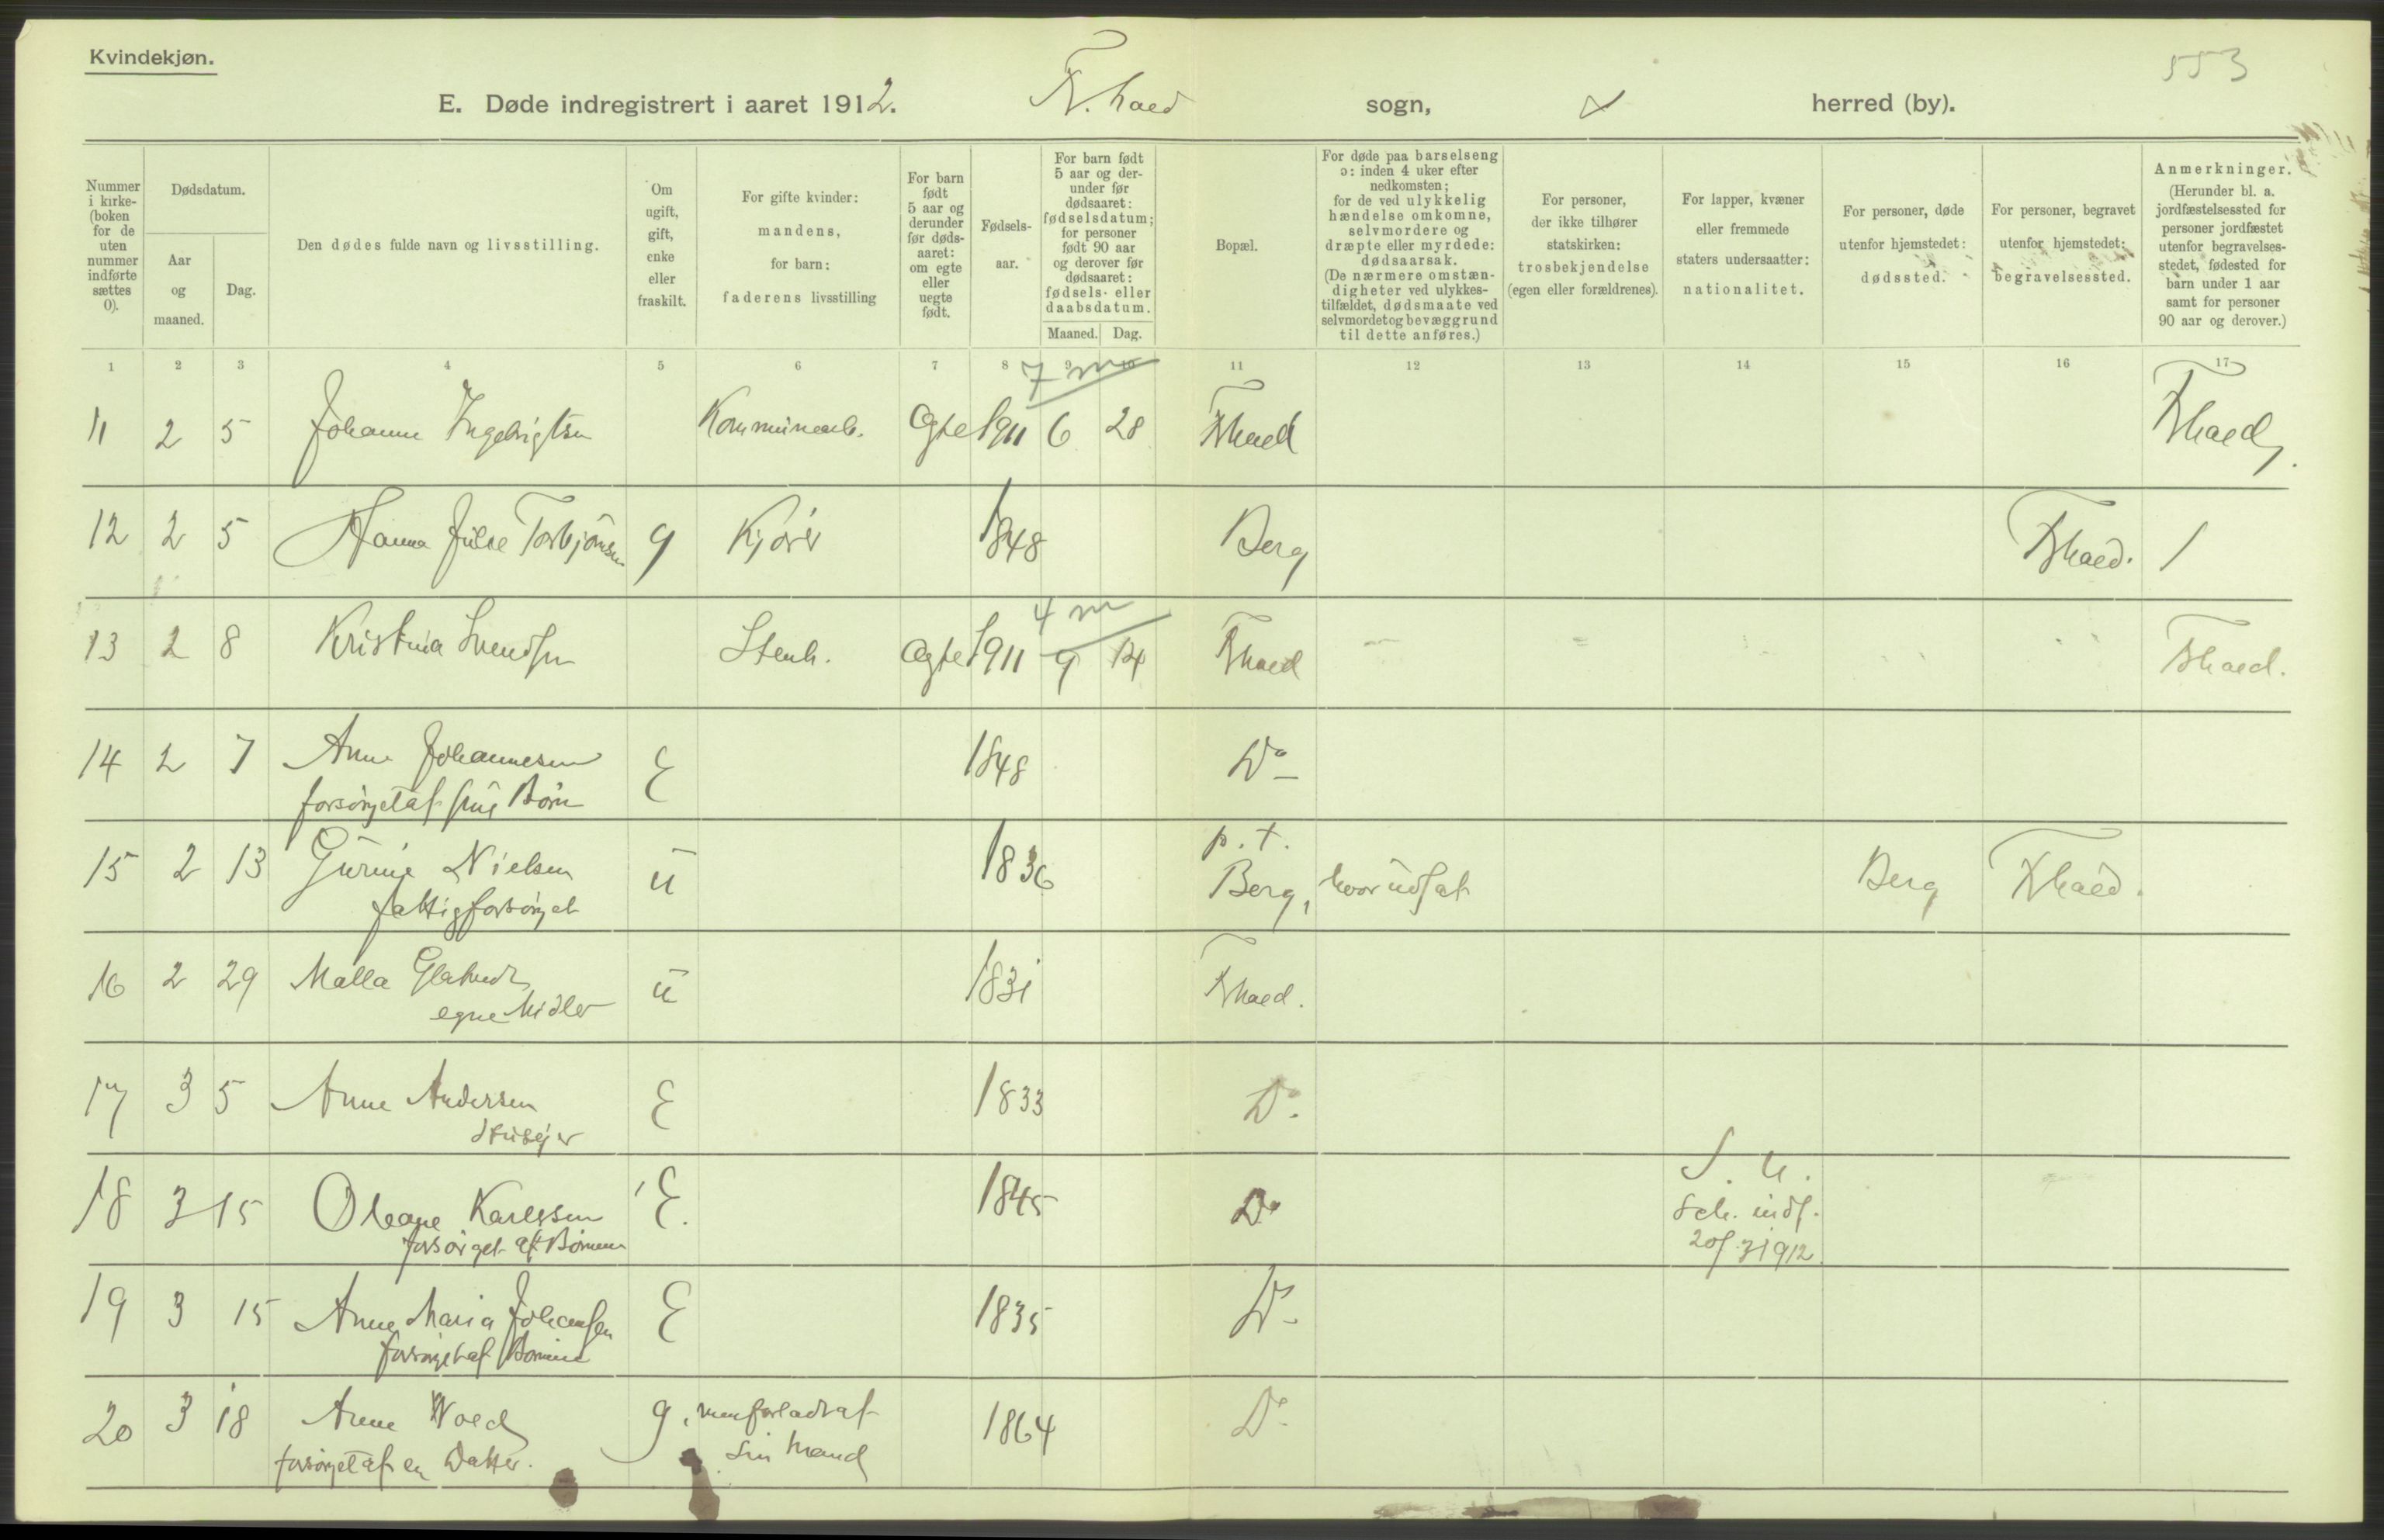 Kvindekjøn.
553
E. Døde indregistrert i aaret 1912. Fr.hald sogn, herred (by).
Nummer i kirke- (boken for de uten nummer indførte sættes 0).
Dødsdatum.
Aar og maaned.
Dag.
Den dødes fulde navn og livsstilling.
Om ugift, gift, enke eller fraskilt.
For gifte kvinder: mandens, for barn: faderens livsstilling
For barn født 5 aar og derunder før døds- aaret: om egte eller uegte født.
Fødsels- aar.
For barn født 5 aar og der- under før dødsaaret: fødselsdatum; for personer født 90 aar og derover før dødsaaret: fødsels- eller daabsdatum.
Maaned. Dag.
Bopæl.
For døde paa barselseng ɔ: inden 4 uker efter nedkomsten; for de ved ulykkelig hændelse omkomne, selvmordere og dræpte eller myrdede: dødsaarsak. (De nærmere omstæn- digheter ved ulykkes- tilfældet, dødsmaate ved selvmordet og bevæggrund til dette anføres.)
For personer, der ikke tilhører statskirken: trosbekjendelse (egen eller forældrenes).
For lapper, kvæner eller fremmede staters undersaatter: nationalitet.
For personer, døde utenfor hjemstedet: dødssted.
For personer, begravet utenfor hjemstedet: begravelsessted.
Anmerkninger. (Herunder bl. a. jordfæstelsessted for personer jordfæstet utenfor begravelses- stedet, fødested for barn under 1 aar samt for personer 90 aar og derover.)
1 2 3 4 5 6 7 8 9 10 11 12 13 14 15 16 17
7 m
11 2 5 Johanne Ingebrigtsen Kommunearb. Ægte 1911 6 28 Fhald Fhald.
12 2 5 Hanna Julie Torbjörnsen g Kjører 1848 Berg Fhald. /
4 m
13 2 8 Kristina Svendsen Stenh. Ægte 1911 9 14 Fhald Fhald.
14 2 7 Anne Johannesen E 1848 Do
forsörget af sine Börn
15 2 13 Gurine Nielsen u 1836 p.t. Berg, hvor udsat Berg Fhald.
fattigforsörget
16 2 29 Malla u 1831 Fhald.
egne Midler
17 3 5 Anne Andersen E 1833 Do.
Husejer
18 3 15 Oleane Karlssen E. 1845 Do S. u.
forsörget af Börnene Sch. inds.
20/3 1912
19 3 15 Anne Maria Johansen E 1835 Do
forsörget af Börnene
20 3 18 Anne g, men forladt af 1864 Do
forsörget af en Datter. sin Mand